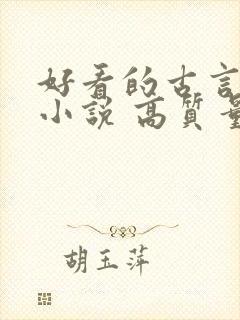 好看的古言
小说 高质量
胡玉萍